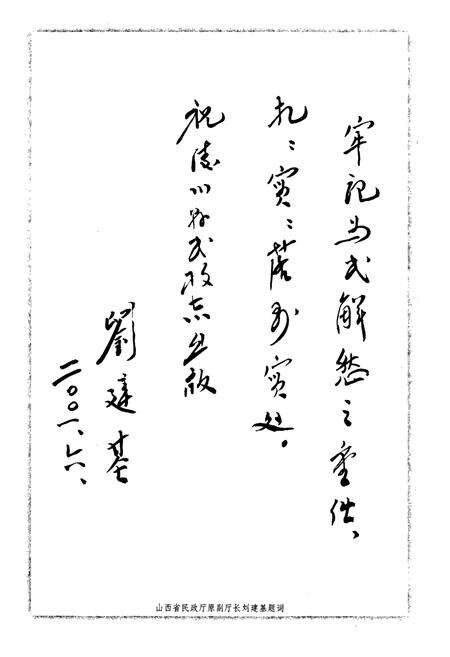 牢记为民解愁之重任、
扎〻实〻落到实处。
祝陵川县民政志出版
劉建基
二〇〇一、六、
山西省民政厅原副厅长刘建基题词